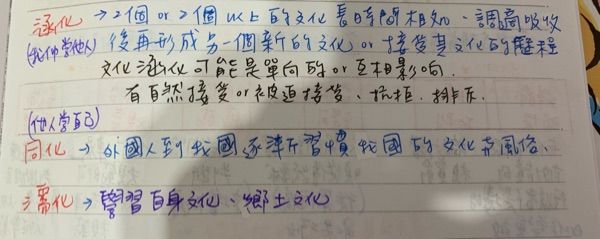 涵化 → 2個 or 2個以上的文化長時間相處、調適吸收
(我們學他人) 後再形成另一個新的文化 or 接受其文化的歷程
文化涵化可能是單向的 or 互相影响.
有自然接受 or 被迫接受、抗拒、排斥.
(他人學自己)
同化 → 外國人到我國逐漸習慣我國的文化與風俗、
濡化 → 學習自身文化、鄉土文化